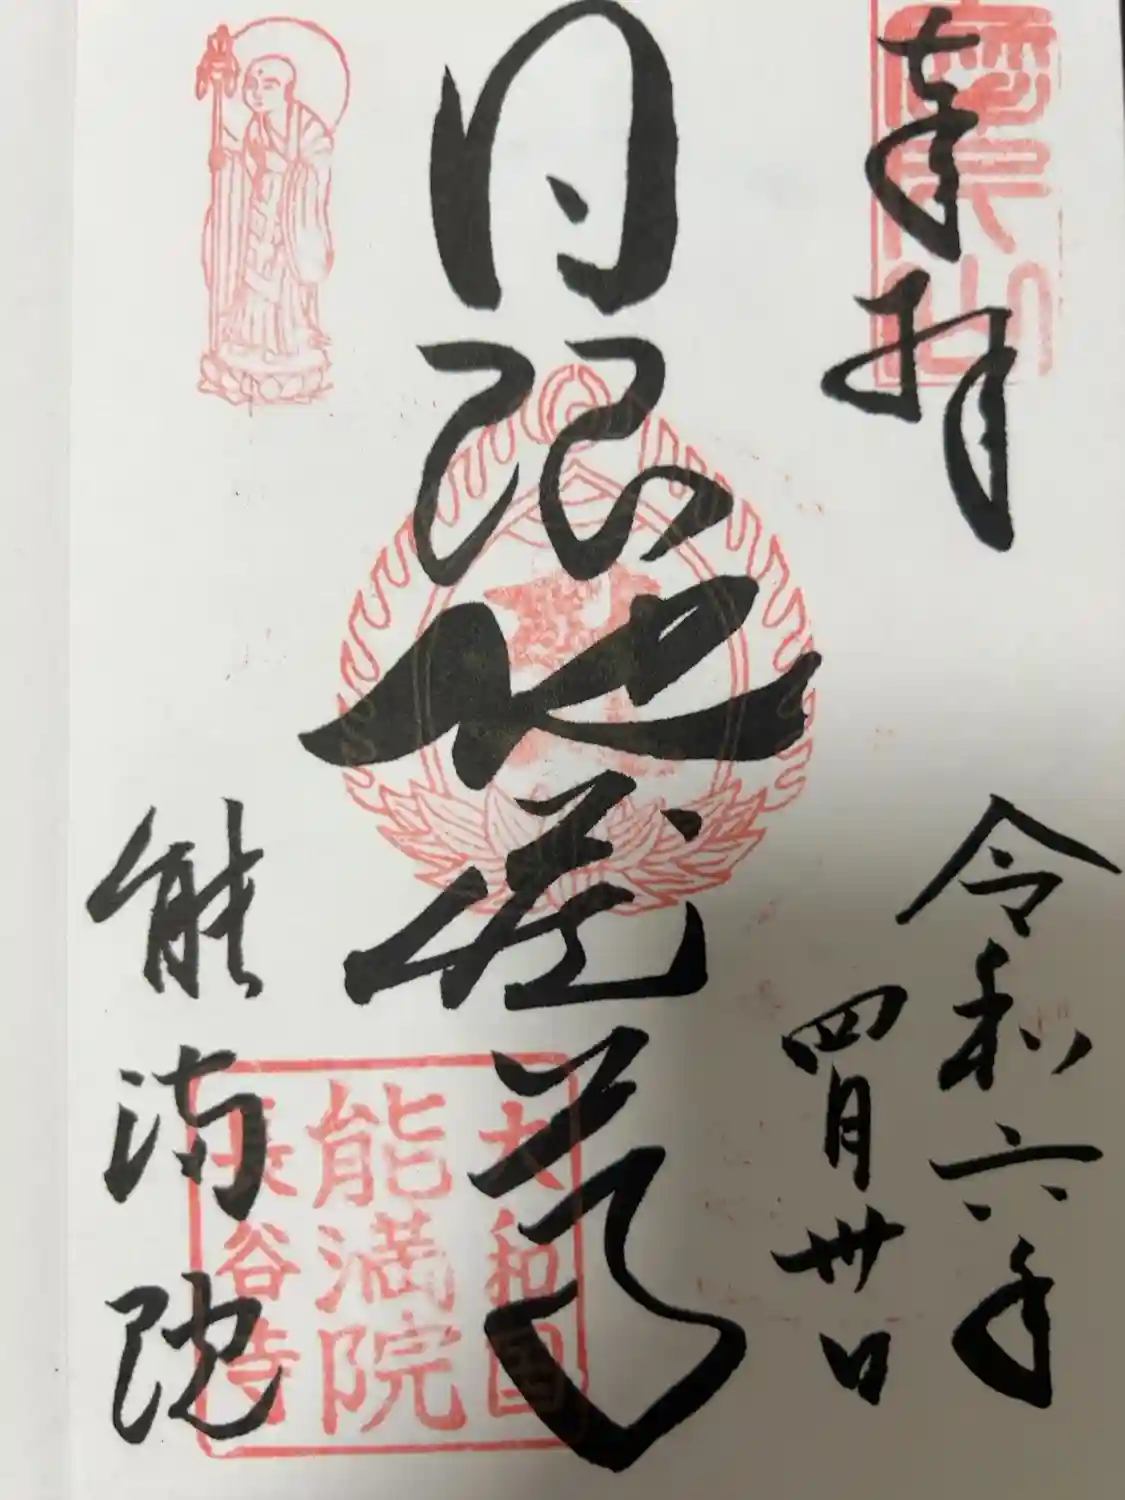 奉拝
令和六年
四月卅日
日限地蔵尊
大和国
能満院
長谷寺
能満院